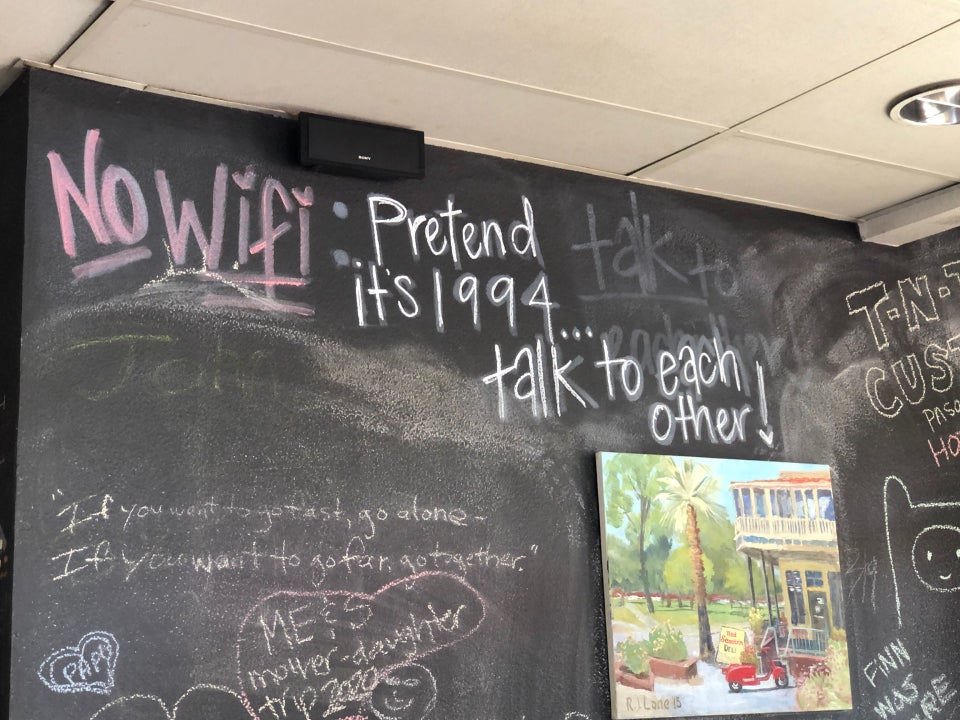 SONY
No Wifi : Pretend
it's 1994...
talk to each
other!
talk to
John
"If you want to go fast, go alone-
If you want to go far, go together."
ME & S
mother-daughter
trip 2020
PAPI
R.J. Lane 15
T-N-T
CUST
PASO
HO
FiNN
WAS
RE